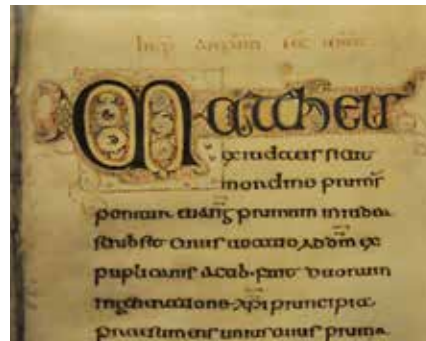 Mattheus
ex iudaeis sicut
in ordine primus
ponitur euang primum in iudea
scribsit Cuius uocatio ad dm ex
puplicanis actib. fuit duorum
in generatione xpi principia
praesumens unius cuius prima